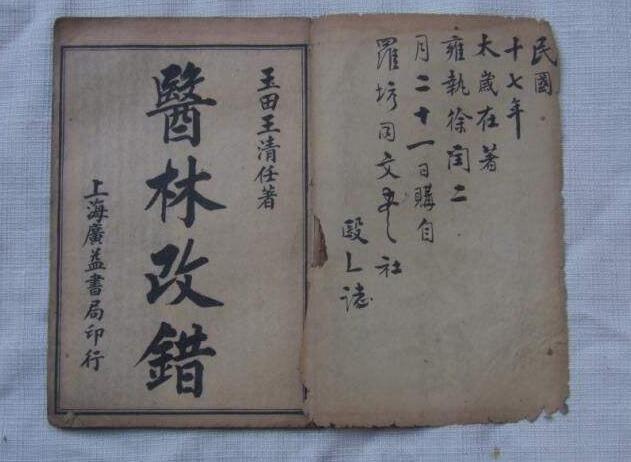 民國
十七年
太歲在著
雍執徐閏二
月二十一日購自
羅坊同文書社
誌
玉田王清任著
醫林改錯
上海廣益書局印行